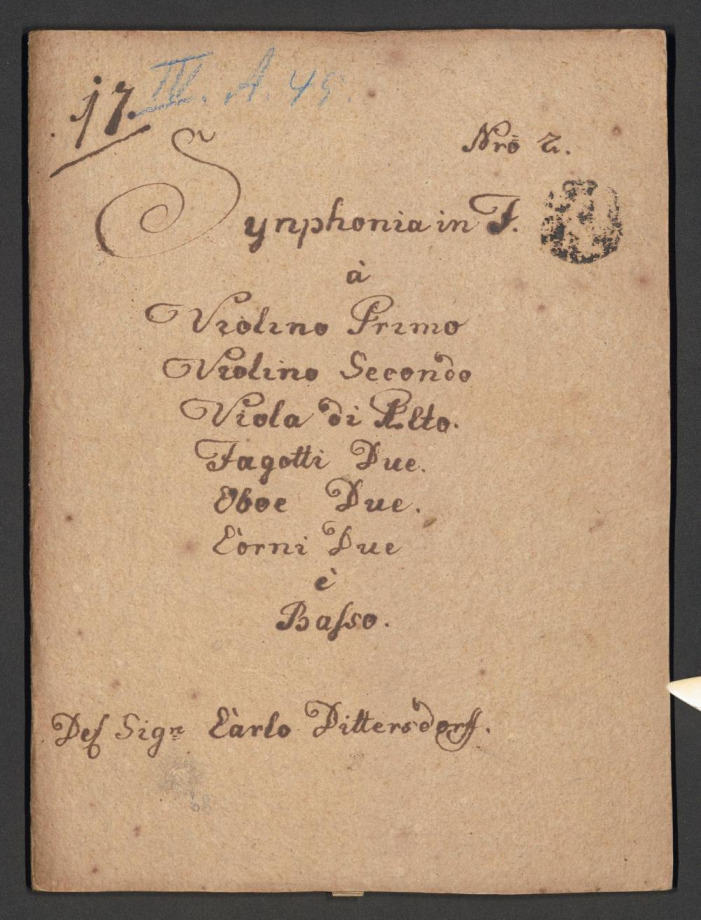 17. IV. A. 45.
Nrō 2.
Synphonia in F.
à
Violino Primo
Violino Secondo
Viola di Alto.
Fagotti Due.
Oboe Due.
Corni Due
è
Baſso.
Del Sigre Carlo Dittersdorff.